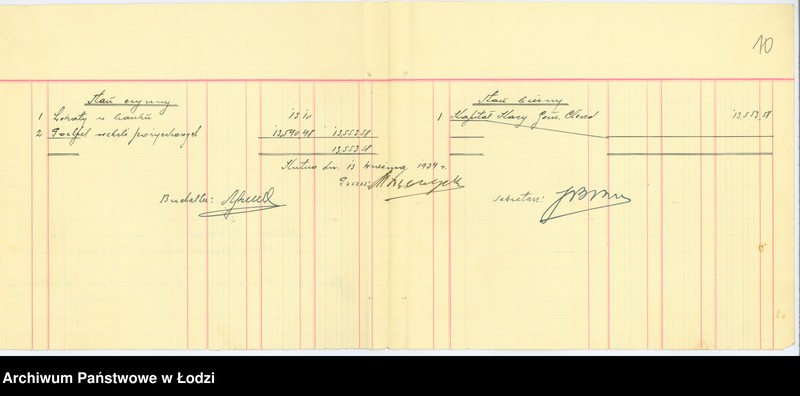 10
Stan czynny
1 Lokaty w banku 13 10
2 Portfel weksli pożyczkowych 13,540,48 13,553,58
13,553,58
Stan bierny
1 Kapitał Kasy Gem. Chesed 13,553,58
Kutno dn. 13 września 1934 r.
Prezes:
Buchalter:
Sekretarz:
Archiwum Państwowe w Łodzi